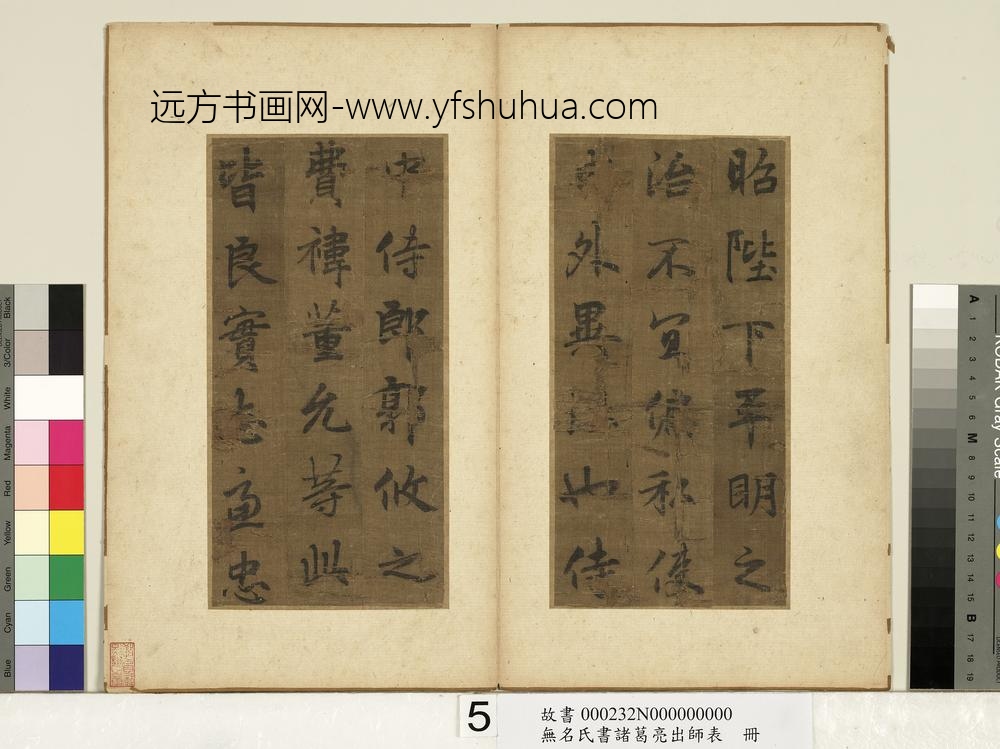 远方书画网-www.yfshuhua.com
昭陛下平明之
治不宜偏私使
外異也侍
中侍郎郭攸之
費禕董允等此
皆良實志慮忠
Black
3/Color
White
Magenta
Red
Yellow
Green
Cyan
Blue
Gray Scale
A 1 2 3 4 5 6 M 8 9 10 11 12 13 14 15 B 17 18 19
5
故書 000232N000000000
無名氏書諸葛亮出師表 冊